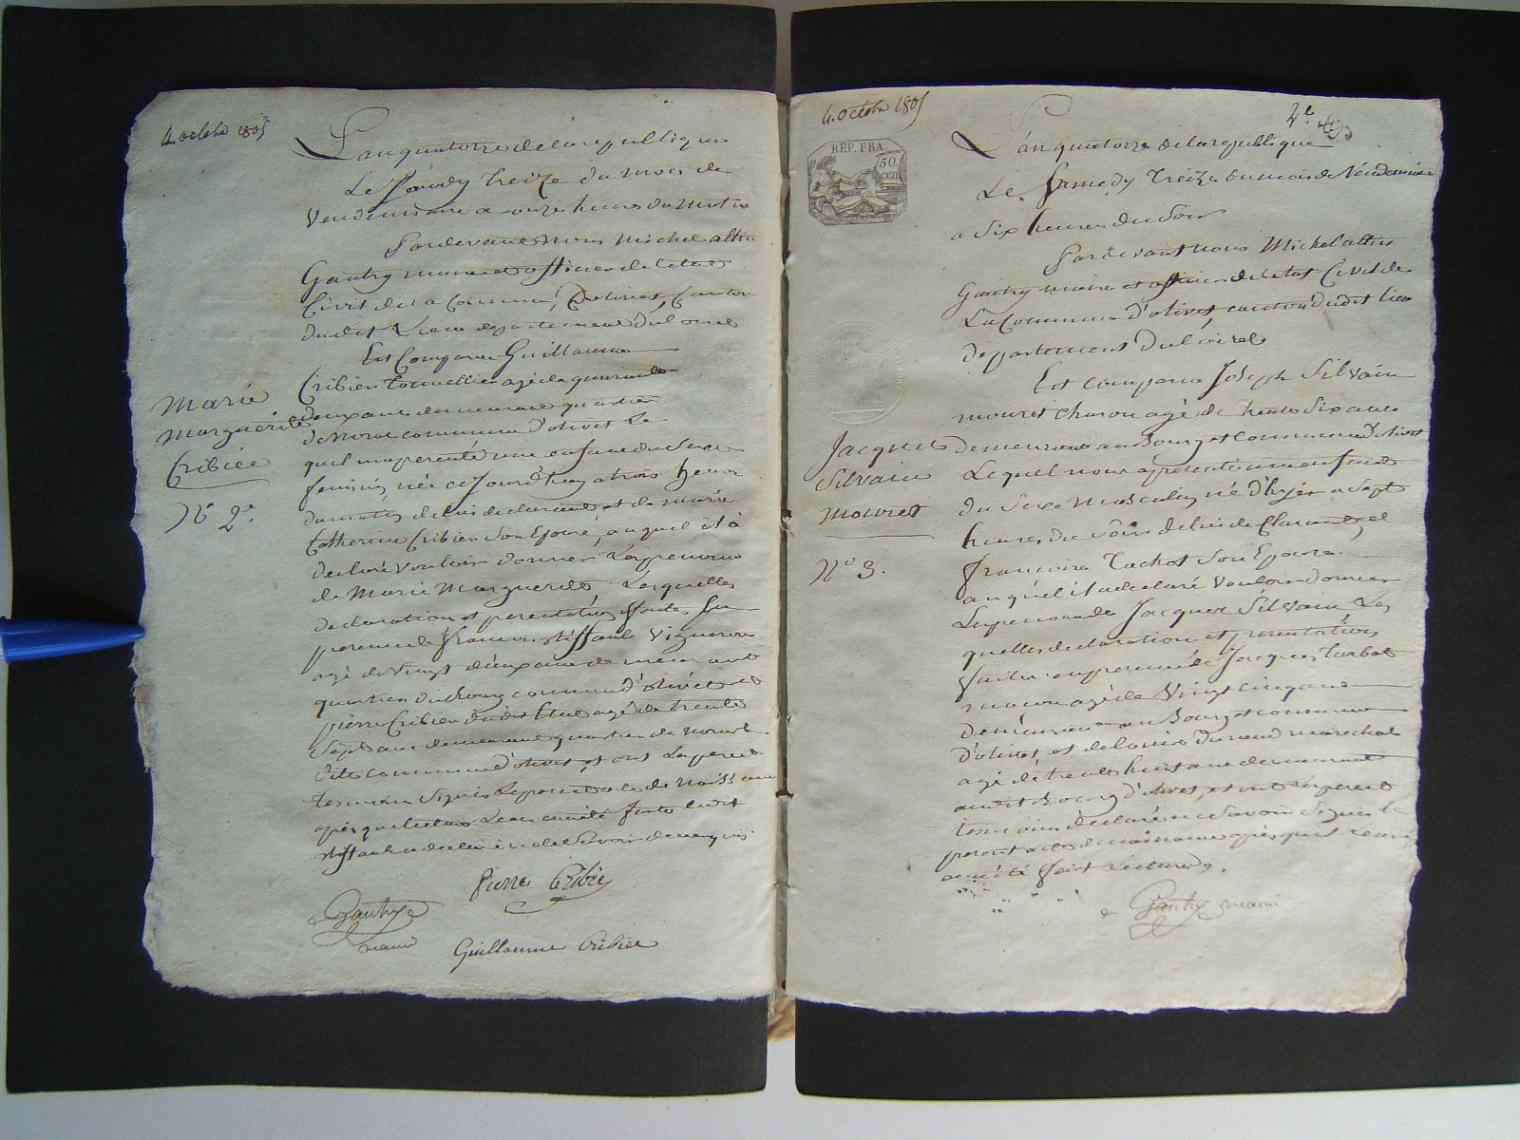 4 octobre 1805
L'an quatorze de la republique
Le Samedy treize du mois de
Vendemiaire a onze heures du matin
Pardevant Nous Michel altin
Gantry maire et officier de l'etat
Civil de la Commune D'olivet, Canton
dudit Lieu departement du Loiret
Est Comparu Guillaume
Cribier tonnellier agé de quarante
deux ans demeurant quartier
commune d'olivet Le
quel ma presenté une enfant du Sexe
feminin, née ce Jourd'huy a trois heures
du matin de lui declarant et de marie
Catherine Cribier Son Epouse, auquel il à
declaré vouloir donner Les prenoms
de Marie Marguerite Lesquelles
declaration et presentation faites En
presence de francois Vigneron
agé de vingt deux ans demeurant
quartier du bourg commune d'olivet et
pierre Cribier dudit Etat agé de trente
Sept ans demeurant quartier de
dite commune d'olivet et ont Les pere et
temoins Signés Le present acte de naissance
après que lecture Leur en a été faite Ledit
a declaré ne le Savoir de ce enquis
Marie
Marguerite
Cribier
N° 2e.
Pierre Cribier
Gantry
maire
Guillaume Cribier
4 octobre 1805
REP. FRA.
50
cen
2e
L'an quatorze de la republique
Le Samedy treize du mois de Vendemiaire
a Six heures du Soir
Pardevant nous Michel altin
Gantry maire et officier de l'etat Civil de
La Commune d'olivet, canton dudit lieu
departement du loiret
Est comparu Joseph Silvain
mouret charon agé de trente Six ans
demeurant au Bourg et commune d'olivet
Lequel nous a presenté un enfant
du Sexe Masculin, né d'hyer a Sept
heures du Soir de lui declarant, et
francoise Tachot Son Epouse
auquel il a declaré vouloir donner
Les prenoms de Jacques Silvain Les
quelles declaration et presentation
faites en presence de Jacques turbat
agé de vingt cinq ans
demeurant au Bourg et commune
d'olivet et de Louis Durand marechal
agé de trente huit ans demeurant
audit Bourg d'olivet, et ont Les pere et
temoins declaré ne Savoir Signer le
present acte de naissance après qu'il leur
en a été fait Lecture
Jacques
Silvain
mouret
N° 3.
Gantry maire